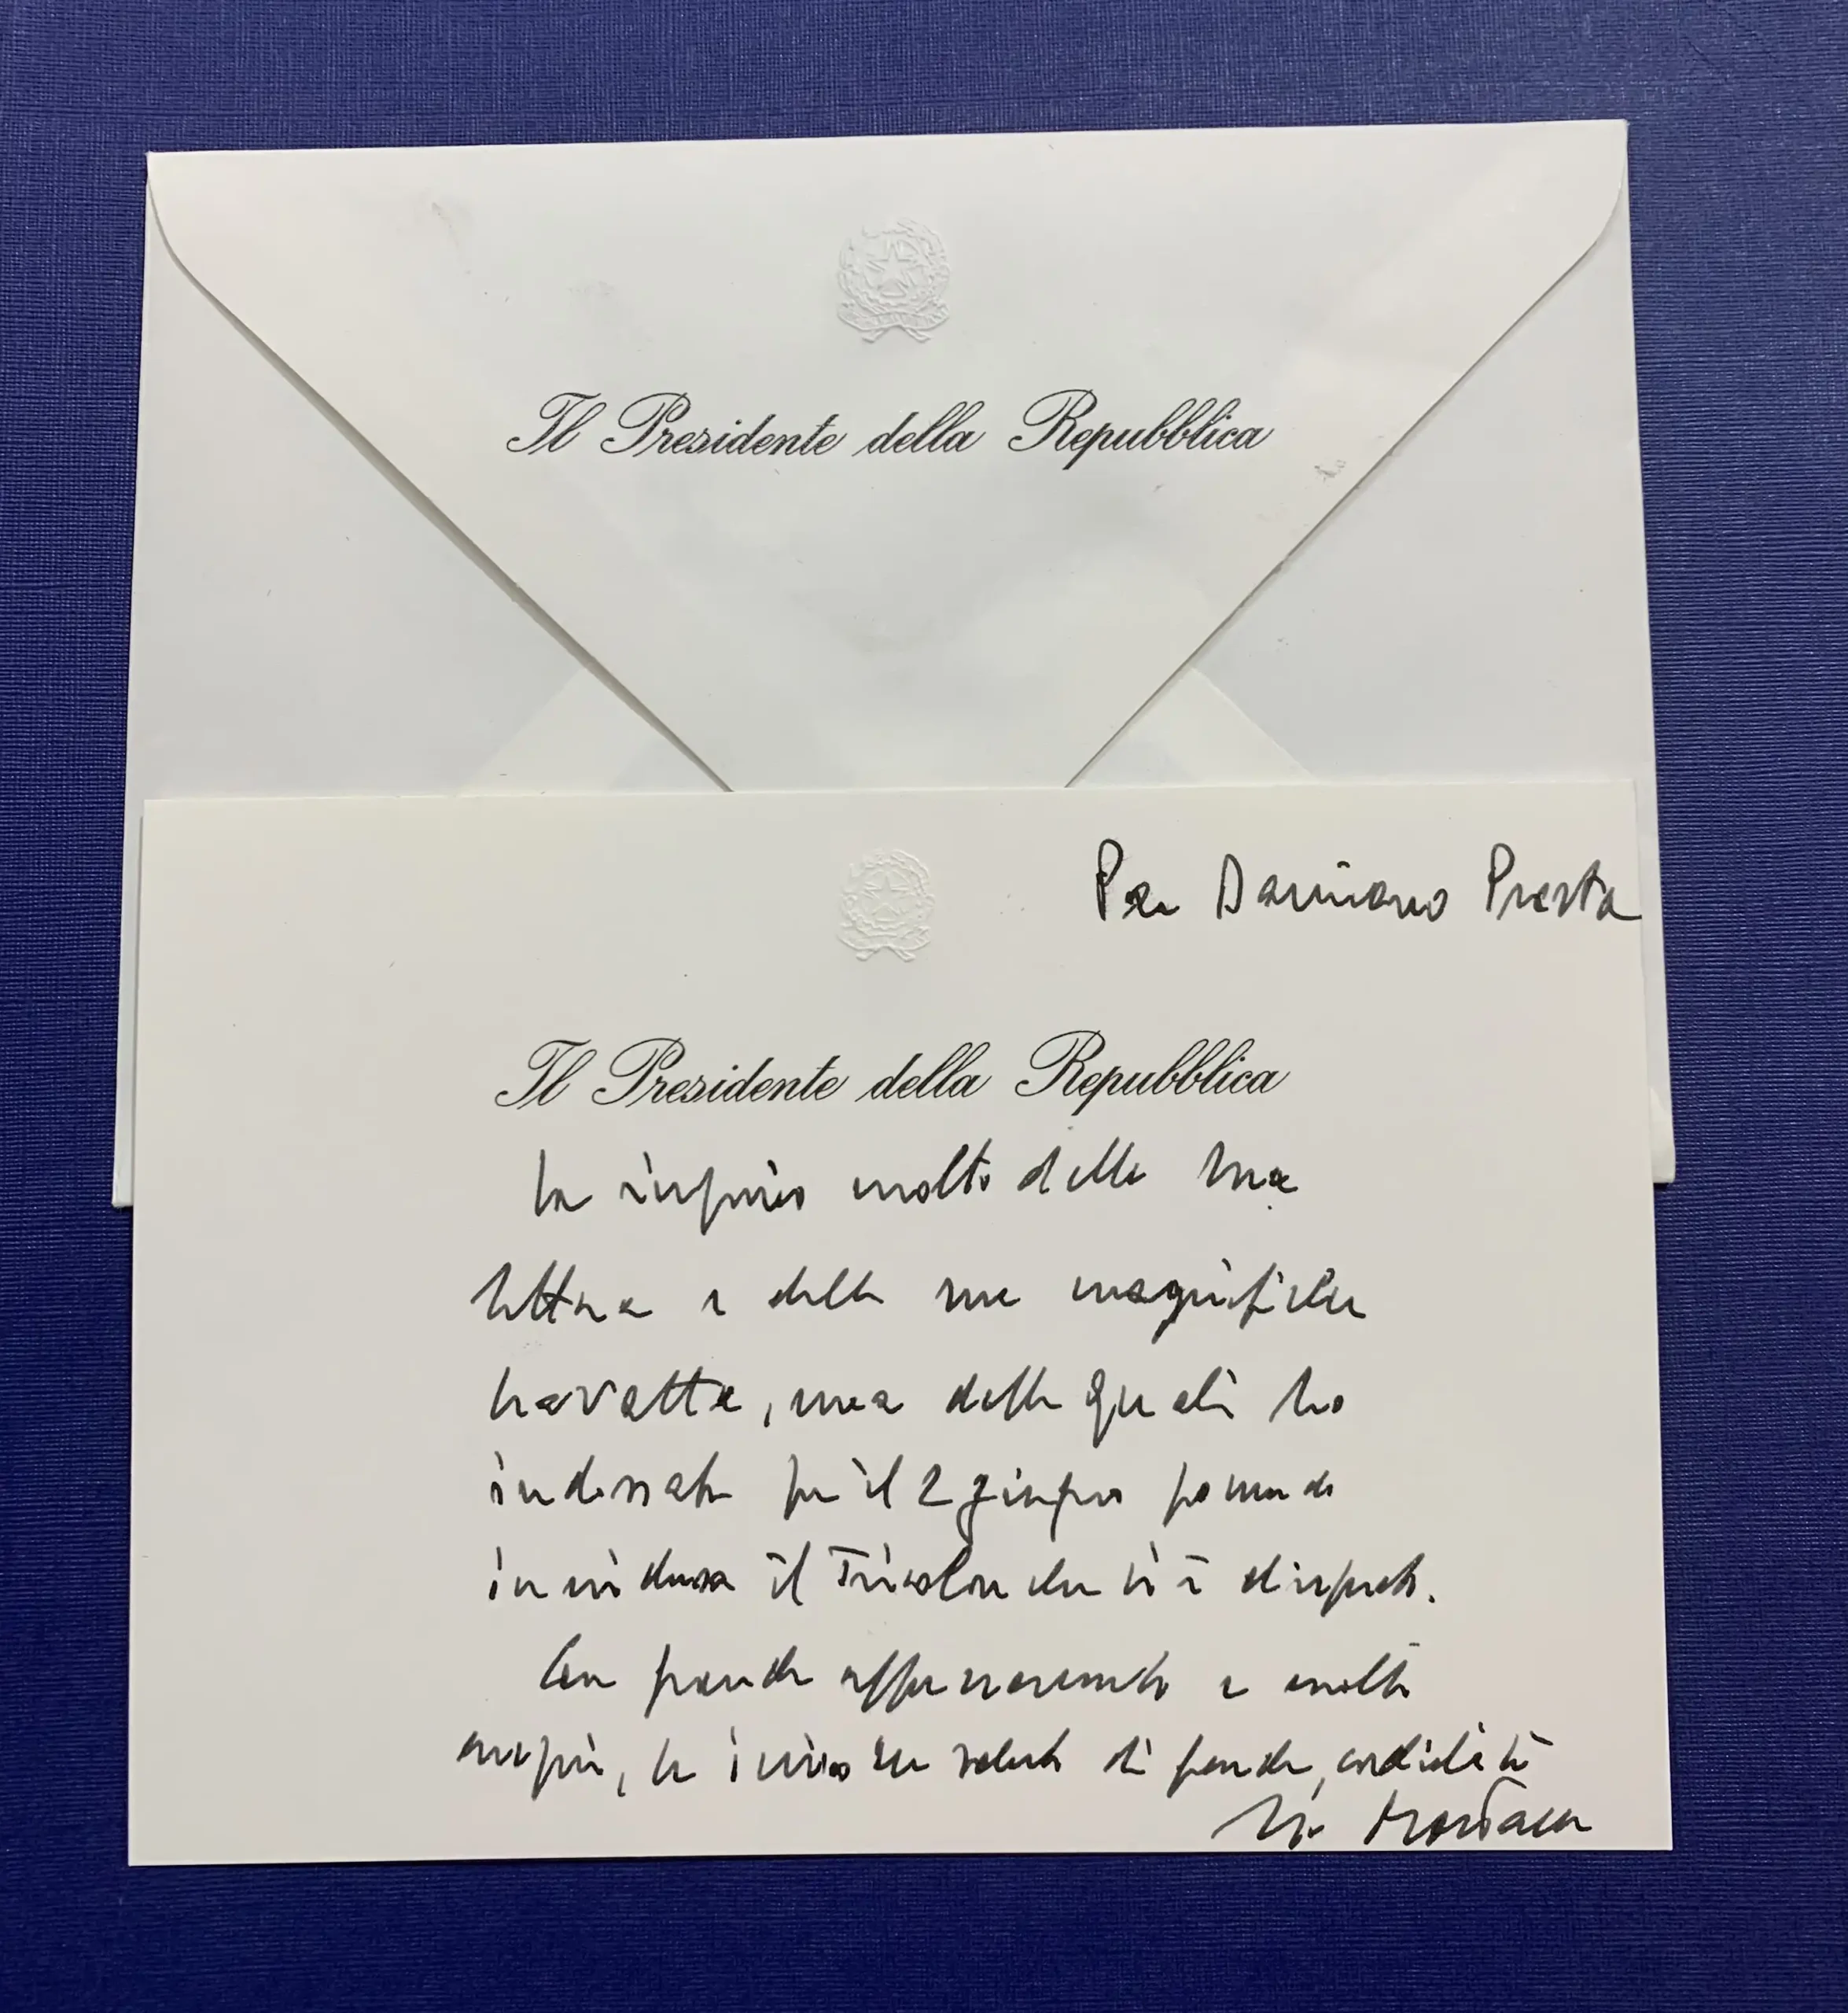 Il Presidente della Repubblica
Per Damiano Presta
Il Presidente della Repubblica
La ringrazio molto della sua
lettera e delle sue magnifiche
cravatte, una delle quali ho
indossato per il 2 giugno
il Tricolore che vi è
Con grande apprezzamento e molti
auguri, le invio un saluto di grande cordialità
Mattarella